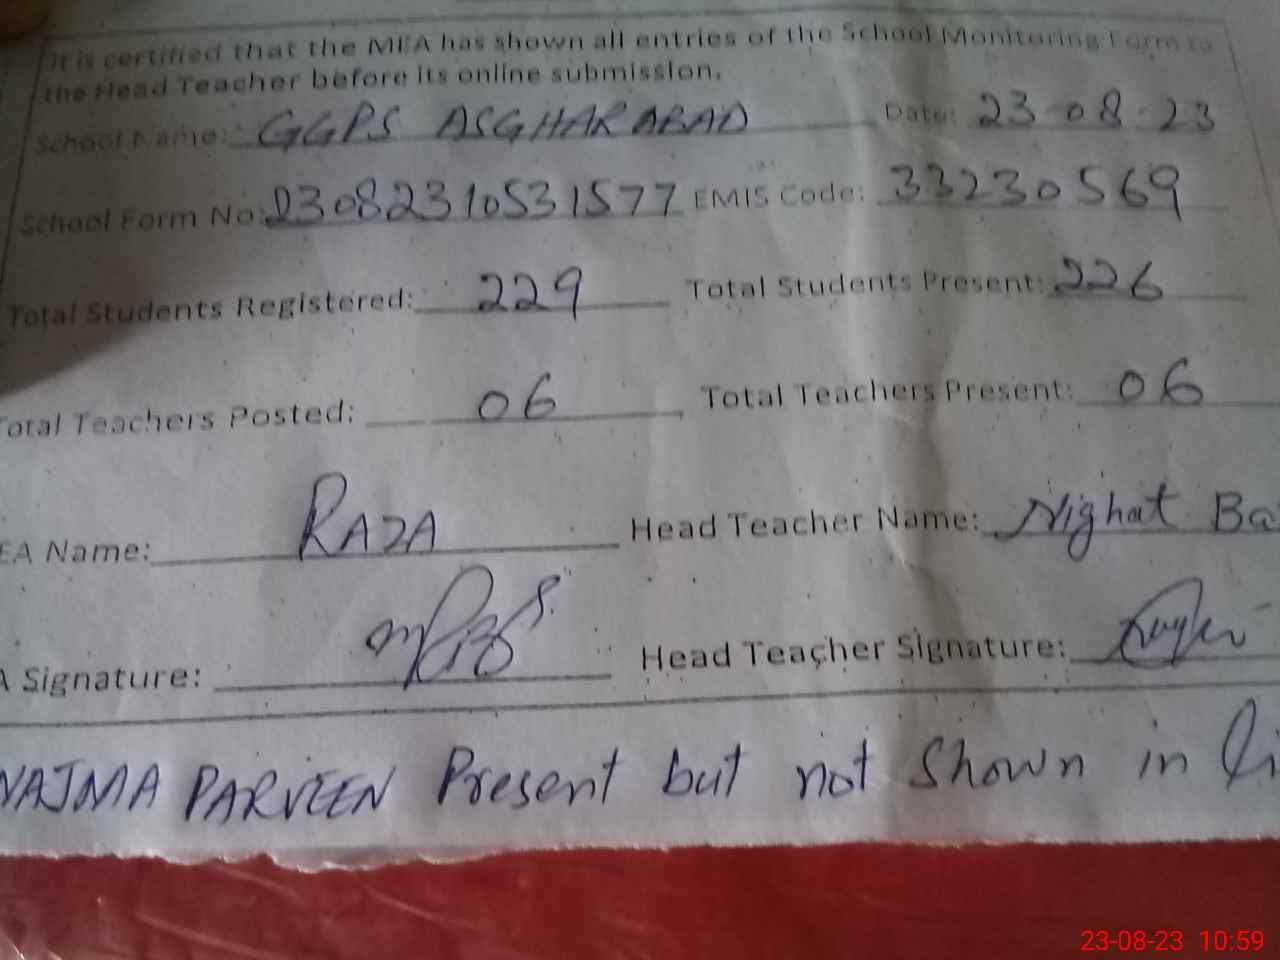 It is certified that the MEA has shown all entries of the School Monitoring Form to
the Head Teacher before its online submission.
School Name: GGPS ASGHARABAD Date: 23-08-23
School Form No: 23082310531577 EMIS Code: 33230569
Total Students Registered: 229 Total Students Present: 226
Total Teachers Posted: 06 Total Teachers Present: 06
EA Name: RAZA Head Teacher Name: Nighat
A Signature: Head Teacher Signature:
NAJMA PARVEEN Present but not Shown in
23-08-23 10:59